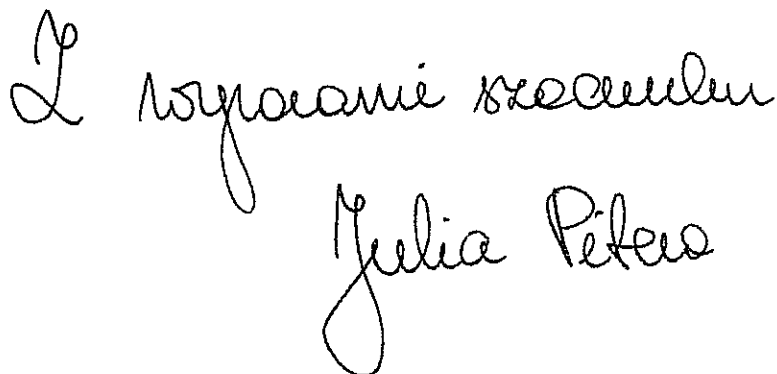 Z wyrazami szacunku
Julia Pitera